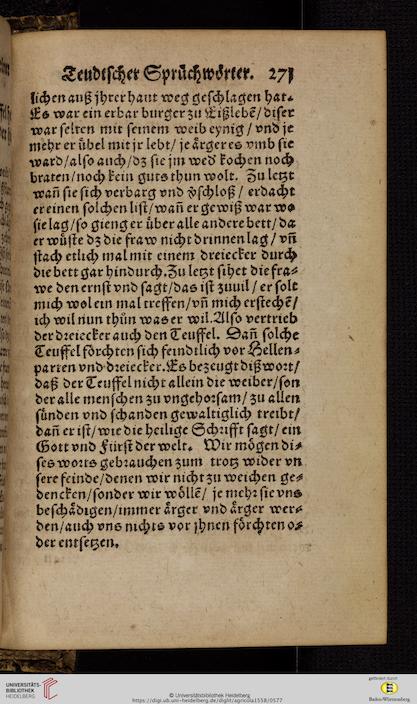 Teudtscher Sprüchwörter. 271
lichen auß jhrer haut weg geschlagen hat.
Es war ein erbar burger zu Eißlebẽ/diser
war selten mit seinem weib eynig/vnd je
mehr er übel mit jr lebt/je ärger es vmb sie
ward/also auch/dz sie jm wed kochen noch
braten/noch kein guts thun wolt. Zu letzt
wañ sie sich verbarg vnd v̈schloß/erdacht
er einen solchen list/wañ er gewiß war wo
sie lag/so gieng er über alle andere bett/da
er wüste dz die fraw nicht drinnen lag/vñ
stach etlich mal mit einem dreiecker durch
die bett gar hindurch. Zu letzt sihet die fra-
we den ernst vnd sagt/das ist zuuil/er solt
mich wol ein mal treffen/vñ mich erstechẽ/
ich wil nun thůn was er wil. Also vertrieb
der dreiecker auch den Teuffel. Dañ solche
Teuffel förchten sich feindtlich vor Hellen-
parten vnd dreiecker. Es bezeugt diß wort/
daß der Teuffel nicht allein die weiber/son
der alle menschen zu vngehorsam/zu allen
sünden vnd schanden gewaltiglich treibt/
dañ er ist/wie die heilige Schrifft sagt/ein
Gott vnd Fürst der welt. Wir mögen di-
ses worts gebrauchen zum trotz wider vn
sere feinde/denen wir nicht zu weichen ge-
dencken/sonder wir wöllẽ/je mehr sie vns
beschädigen/immer ärger vnd ärger wer-
den/auch vns nichts vor jhnen förchten o-
der entsetzen.
UNIVERSITÄTS-
BIBLIOTHEK
HEIDELBERG
© Universitätsbibliothek Heidelberg
https://digi.ub.uni-heidelberg.de/diglit/agricola1558/0577
gefördert durch
Baden-Württemberg